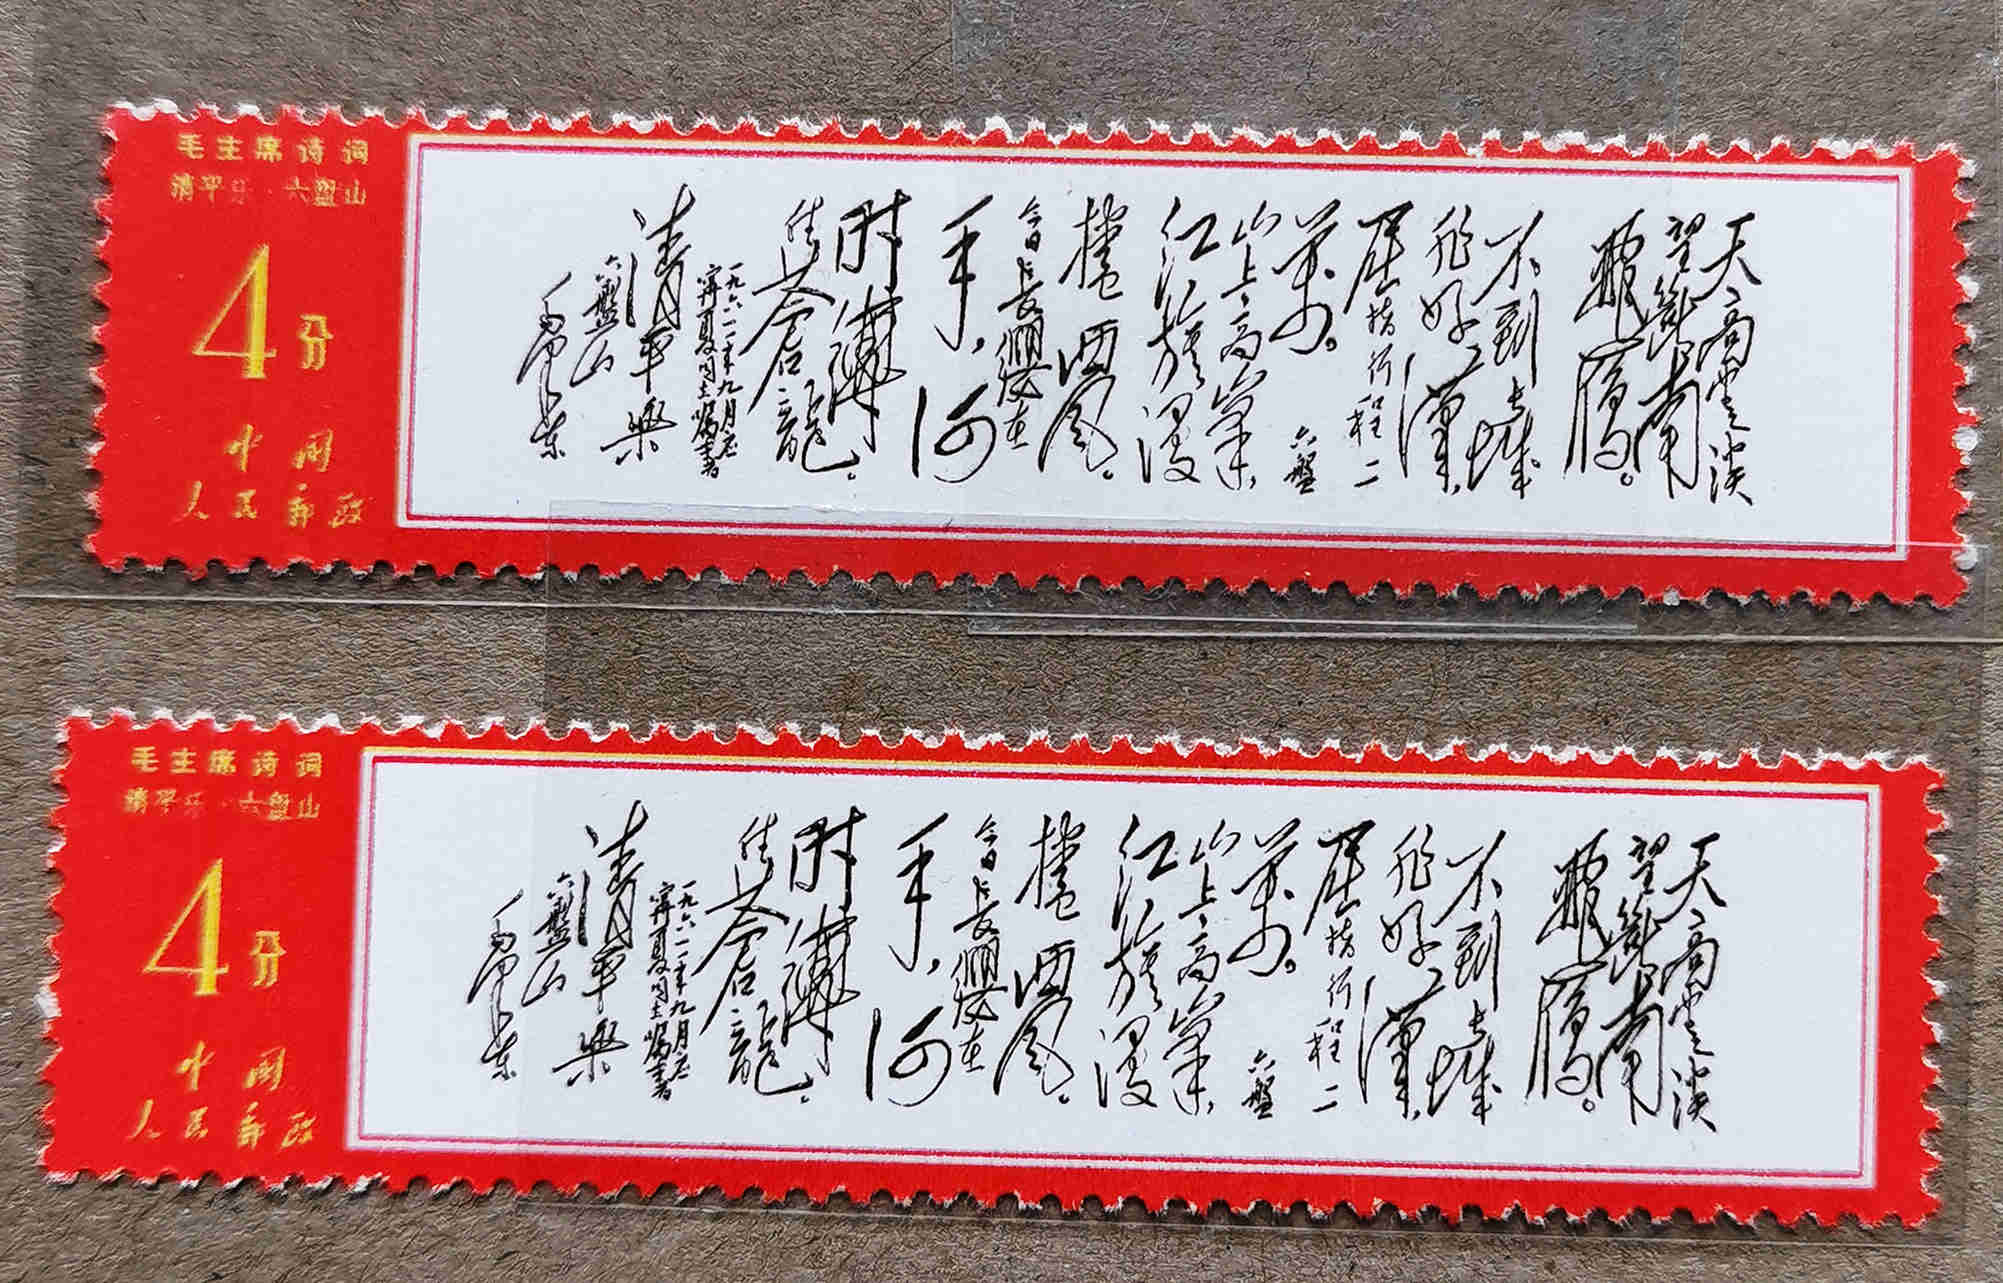 毛主席诗词
清平乐·六盘山
4分
中国
人民邮政
天高雲淡
望断南
飛雁。
不到长城
非好漢,
屈指行程二
萬。六盤
山上高峯,
红旗漫
捲西風。
今日長纓在
手,何
时縛
住蒼龍。
一九六一年九月应
寧夏同志嘱書
清平樂
六盤山
毛泽东
毛主席诗词
清平乐·六盘山
4分
中国
人民邮政
天高雲淡
望断南
飛雁。
不到长城
非好漢,
屈指行程二
萬。六盤
山上高峯,
红旗漫
捲西風。
今日長纓在
手,何
时縛
住蒼龍。
一九六一年九月应
寧夏同志嘱書
清平樂
六盤山
毛泽东